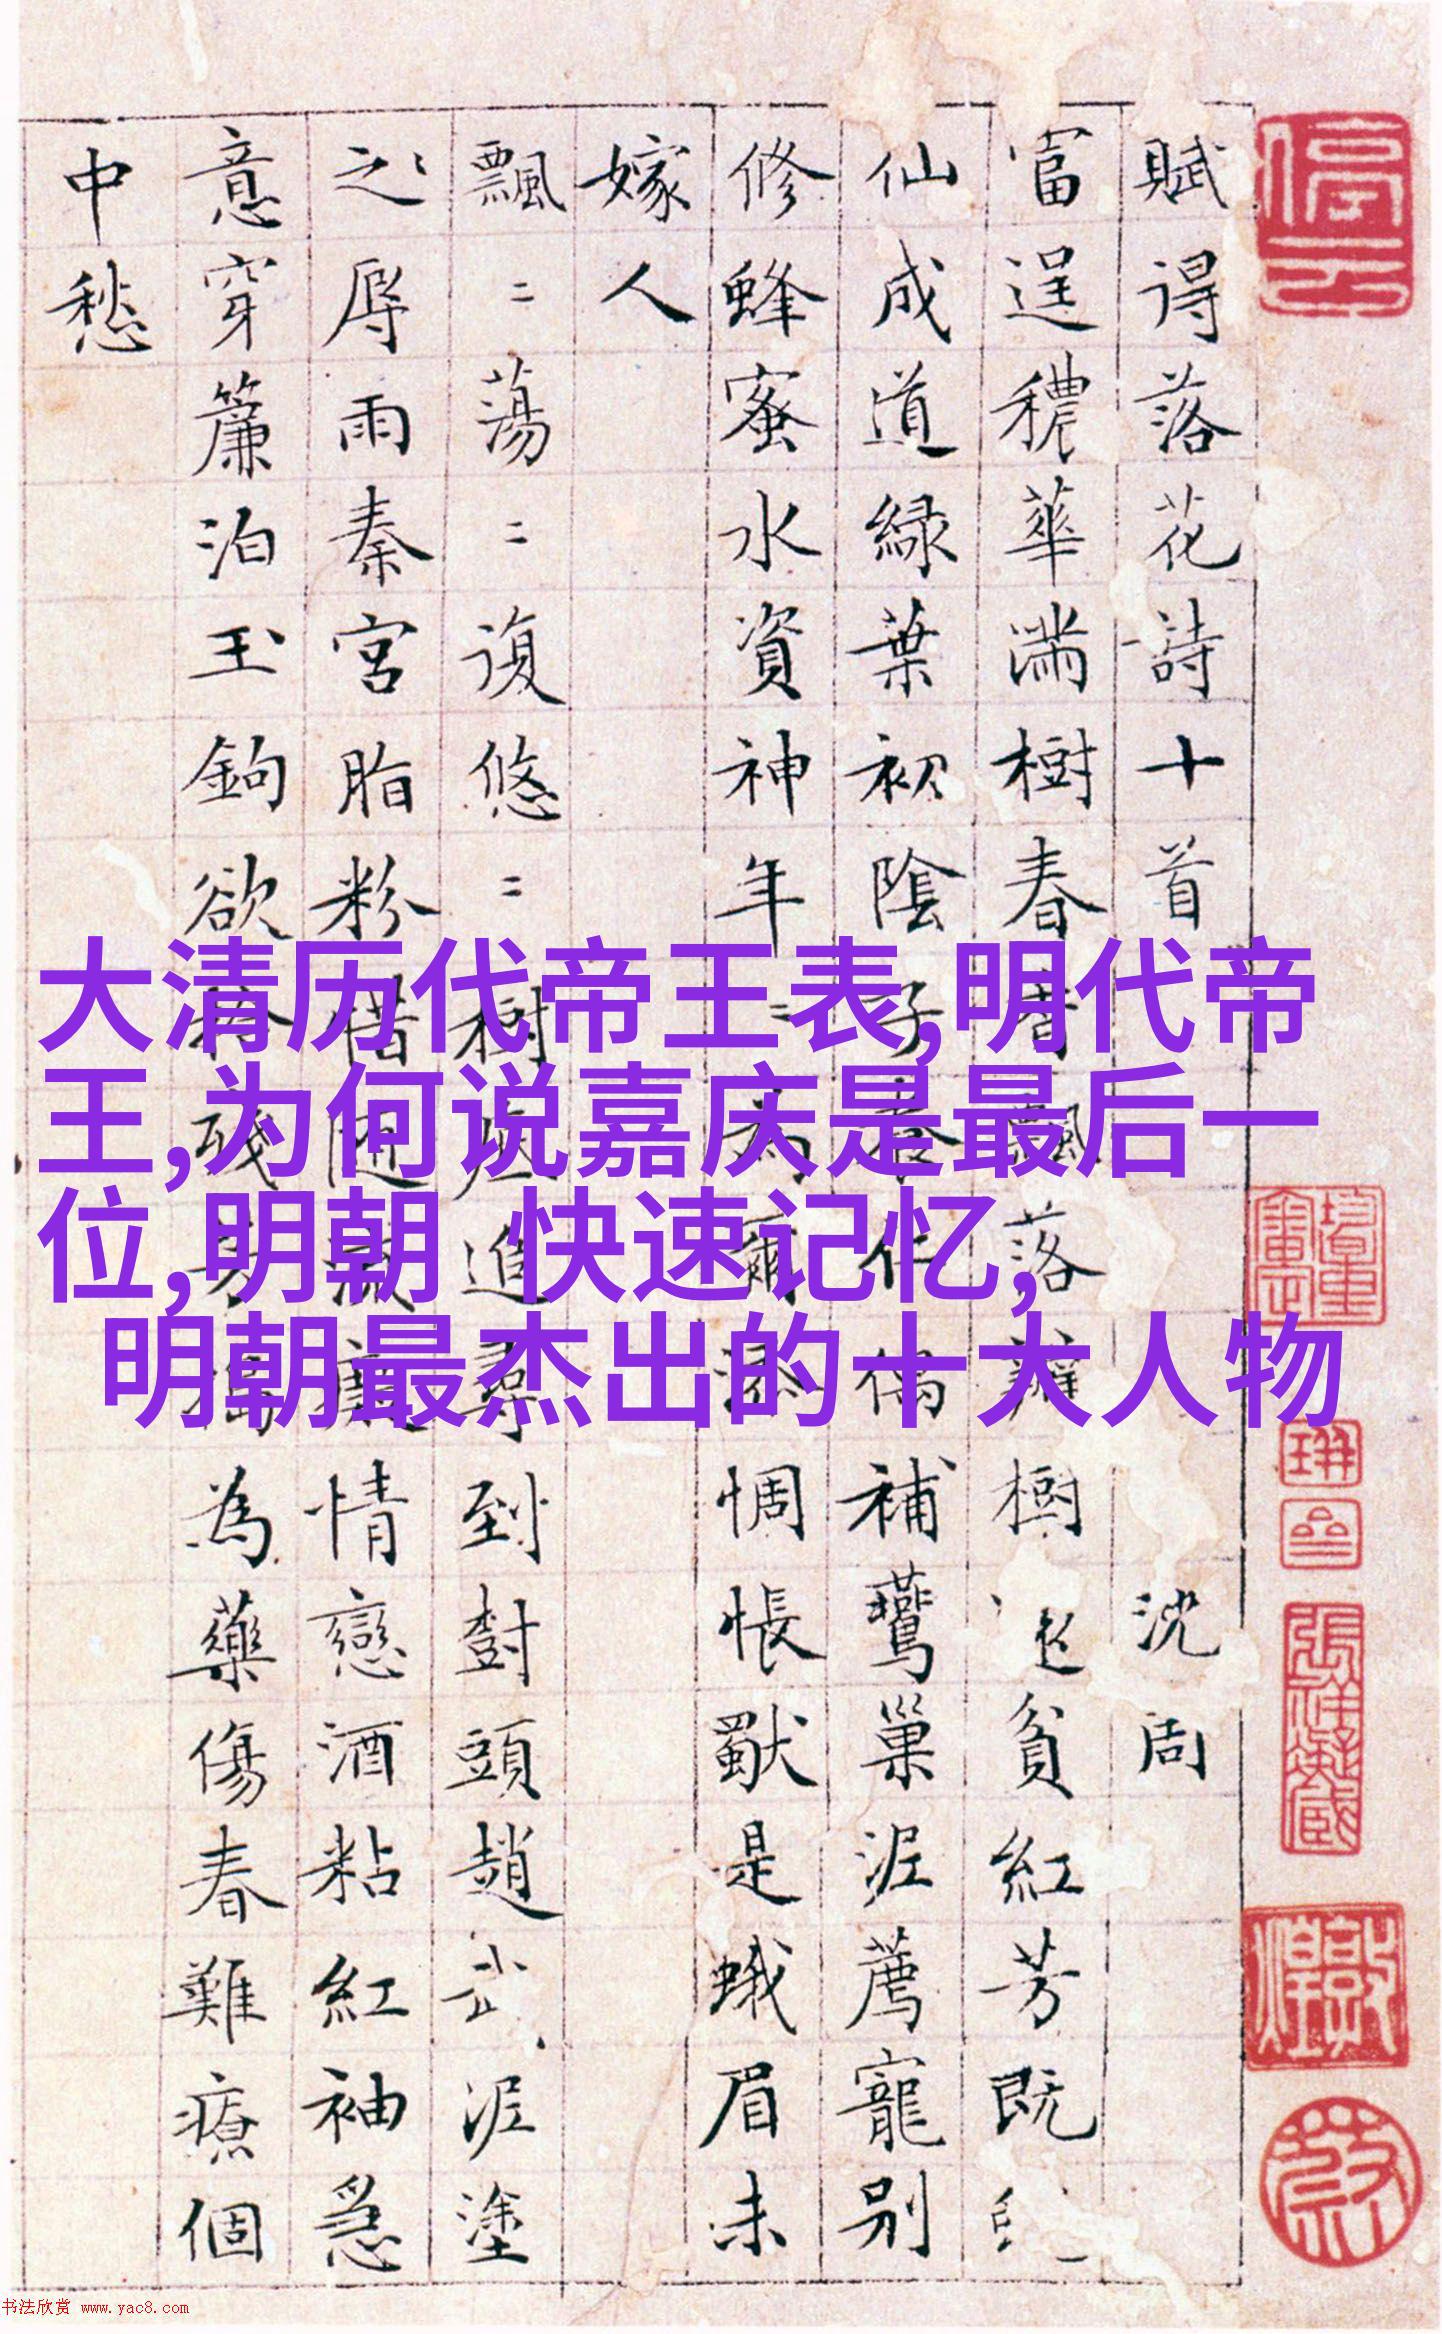 賦得落花詩十首 沈周
富逞穠華滿樹春 飄落樹 貧紅芳既
仙成道緑葉初陰子 仁 補鶯巢泥薦寵別
修蜂蜜水資神年 為爾 惆悵獸是蛾眉未
嫁人
飄〻蕩〻復悠〻樹 追尋到樹頭趙 泥塗
之辱雨秦宮脂粉惜隨 情戀酒粘紅袖急
意穿簾泊玉鉤欲 殘 為藥傷春難療個
中愁
大清历代帝王表,明代帝
王,为何说嘉庆是最后一
位,明朝 快速记忆,
明朝最杰出的十大人物
停云
敦煌
书法欣赏 www.yac8.com